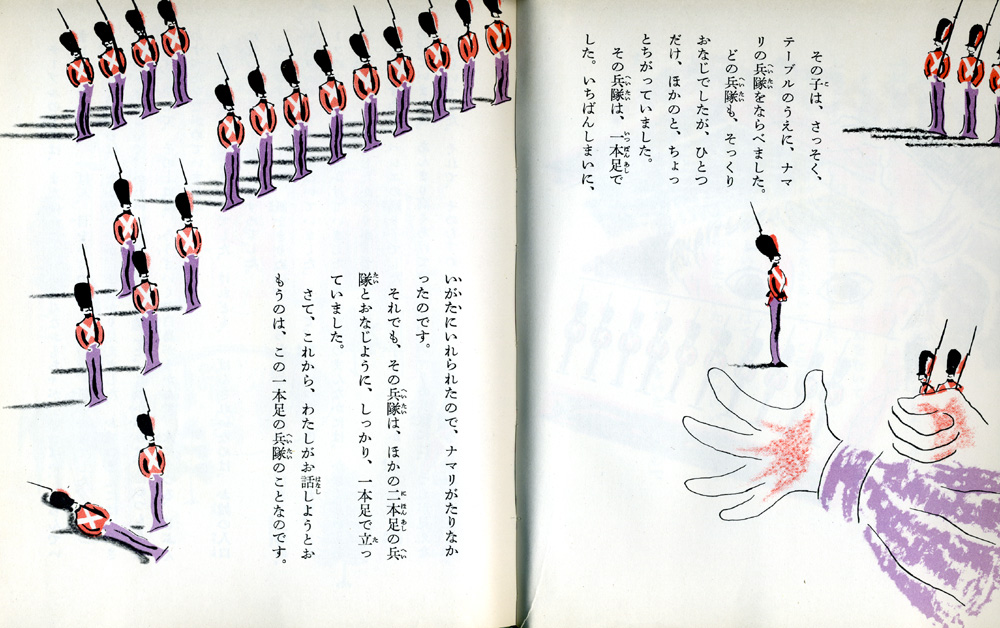 その子は、さっそく、
テーブルのうえに、ナマ
リの兵隊をならべました。
どの兵隊も、そっくり
おなじでしたが、ひとつ
だけ、ほかのと、ちょっ
とちがっていました。
その兵隊は、一本足で
した。いちばんしまいに、
いがたにいれられたので、ナマリがたりなか
ったのです。
それでも、その兵隊は、ほかの二本足の兵
隊とおなじように、しっかり、一本足で立っ
ていました。
さて、これから、わたしがお話しようとお
もうのは、この一本足の兵隊のことなのです。